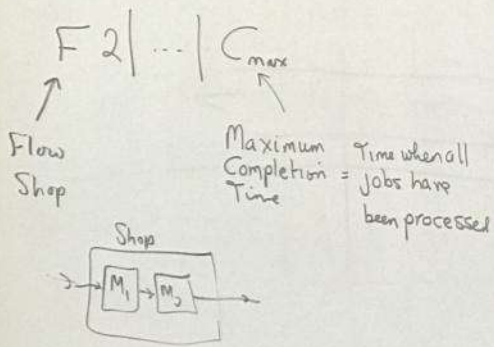 F 2 | ... | Cmax
Flow
Shop
Maximum
Completion = Time when all
Time jobs have
been processed
Shop
M1
M2